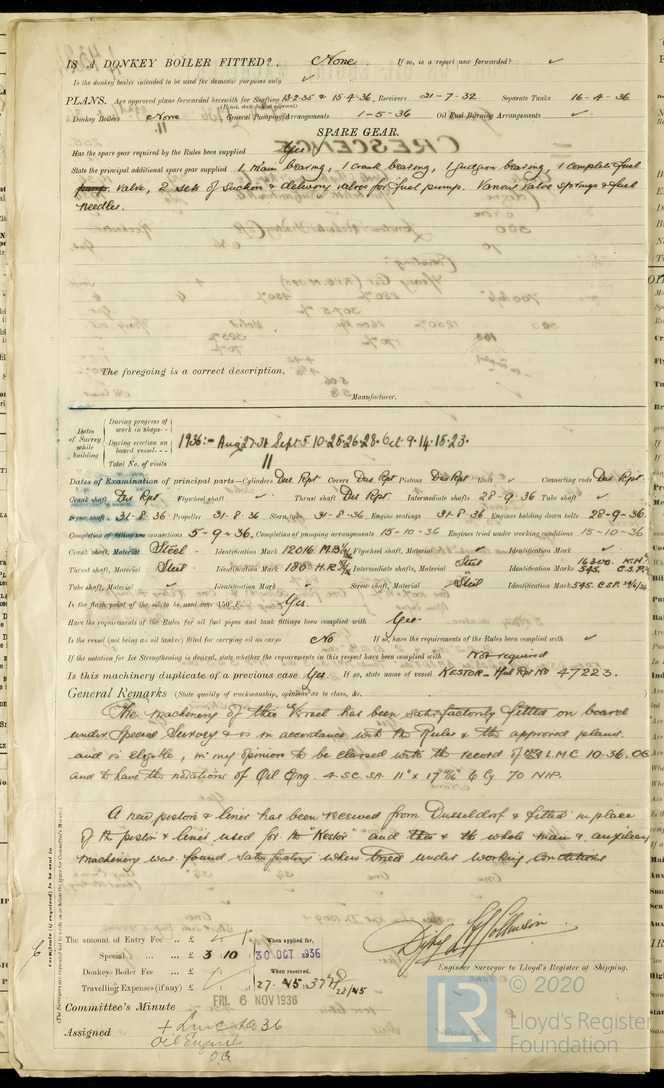 IS A DONKEY BOILER FITTED? None If so, is a report now forwarded? ✓
Is the donkey boiler intended to be used for domestic purposes only ✓
PLANS. Are approved plans forwarded herewith for Shafting 13-2-35 & 15-4-36 Receivers 21-7-32 Separate Tanks 16-4-36
(If not, state date of approval)
Donkey Boilers None General Pumping Arrangements 1-5-36 Oil Fuel Burning Arrangements ✓
SPARE GEAR.
Has the spare gear required by the Rules been supplied Yes
State the principal additional spare gear supplied 1 main bearing, 1 crank bearing, 1 gudgeon bearing, 1 complete fuel
pump valve, 2 sets of suction & delivery valves for fuel pump. Various valve springs & fuel
needles.
The foregoing is a correct description,
Manufacturer.
Dates of Survey while building
During progress of work in shops - -
During erection on board vessel - - - 1936:- Aug 27.31 Sept. 5.10.25.26.28. Oct. 9.14.15.23.
Total No. of visits 11
Dates of Examination of principal parts—Cylinders Dus. Rpt Covers Dus. Rpt Pistons Dus Rpt Rods ✓ Connecting rods Dus Rpt.
Crank shaft Dus Rpt Flywheel shaft ✓ Thrust shaft Dus Rpt. Intermediate shafts 28-9-36 Tube shaft ✓
Screw shaft 31-8-36 Propeller 31-8-36 Stern tube 31-8-36 Engine seatings 31-8-36 Engines holding down bolts 28-9-36.
Completion of fitting sea connections 5-9-36. Completion of pumping arrangements 15-10-36 Engines tried under working conditions 15-10-36
Crank shaft, Material Steel Identification Mark 12016. M.B. Flywheel shaft, Material ✓ Identification Mark ✓
Thrust shaft, Material Steel Identification Mark 180 H.R. Intermediate shafts, Material Steel Identification Marks 16300. K.H. 545. C.S.P.
Tube shaft, Material ✓ Identification Mark ✓ Screw shaft, Material Steel Identification Mark 545. C.S.P.
Is the flash point of the oil to be used over 150° F. Yes.
Have the requirements of the Rules for oil fuel pipes and tank fittings been complied with Yes.
Is the vessel (not being an oil tanker) fitted for carrying oil as cargo No If so, have the requirements of the Rules been complied with ✓
If the notation for Ice Strengthening is desired, state whether the requirements in this respect have been complied with Not required
Is this machinery duplicate of a previous case Yes. If so, state name of vessel KESTOR - Hul Rpt No 47223.
General Remarks (State quality of workmanship, opinions as to class, &c.
The machinery of this Vessel has been satisfactorily fitted on board
under Special Survey & is in accordance with the Rules & the approved plans.
and is eligible, in my opinion to be classed with the record of L.M.C 10.36. OG
and to have the notations of Oil Eng. 4.S.C. SA. 6 Cy 70 NHP.
A new piston & liner has been received from Dusseldorf & fitted in place
of the piston & liner used for the "Kestor" and the whole main & auxiliary
machinery was found satisfactory when tried under working conditions
The amount of Entry Fee .. £ : : When applied for,
Special ... ... £ 3 : 10 : 30 OCT 1936
Donkey Boiler Fee ... £ : : When received,
Travelling Expenses (if any) £ : :
Engineer Surveyor to Lloyd's Register of Shipping.
Committee's Minute FRI. 6 NOV 1936
Assigned + LMC 10.36
Oil Engine
O.G.
© 2020
LR Lloyd's Register
Foundation